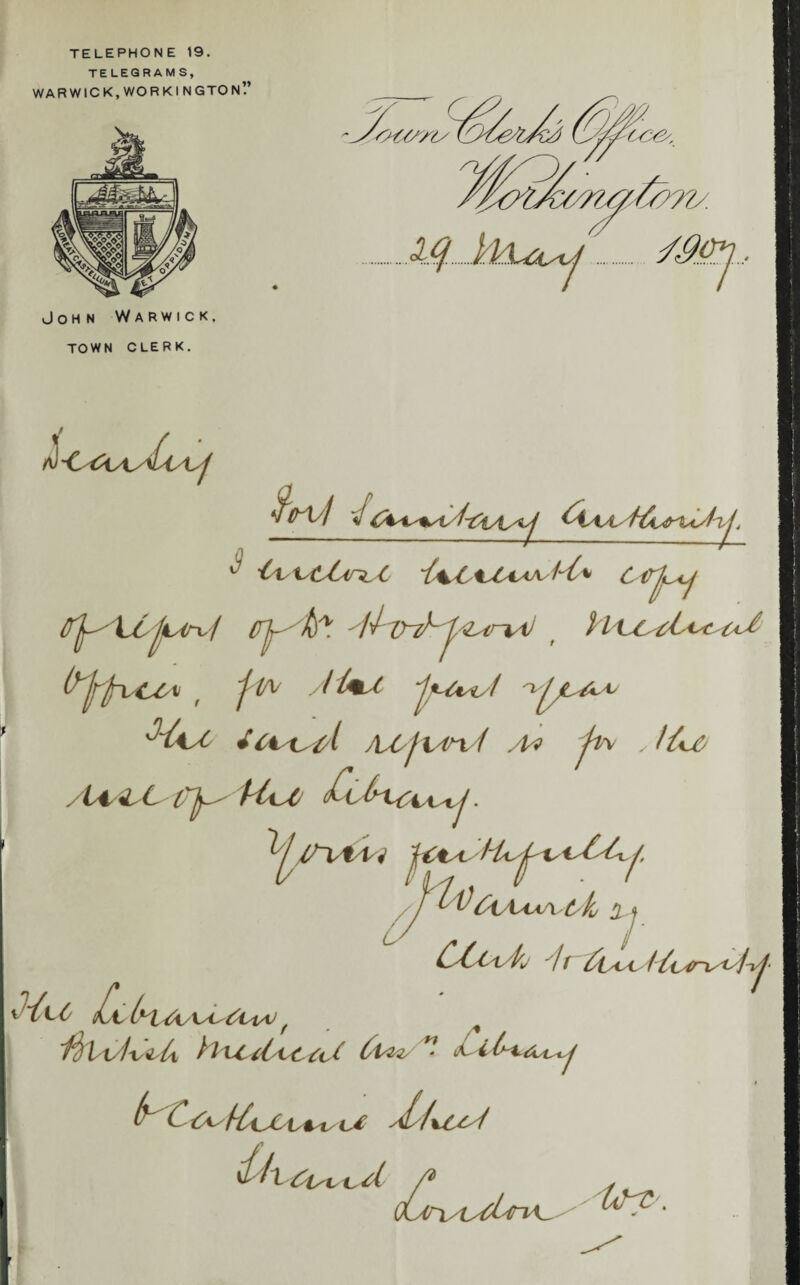 TELEPHONE 19.
TELEGRAMS,
WARWICK, WORKINGTON."
Town Clerk's Office,
Workington.
29 May 1907.
FLOREAT CASTELLUM ET OPPIDUM
JOHN WARWICK,
TOWN CLERK.
Dear Sir,
Port Sanitary Authority.
I enclose herewith copy
of report of Dr Highet, Medical
Officer, for the past year
The said report is for the
use of the Library.
Yours faithfully,
J Warwick
Clerk to Authority.
The Librarian,
British Medical Assn. Library
6 Catherine Street
Strand
London W.C.